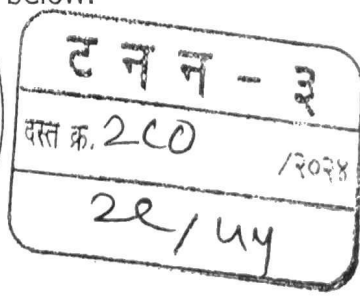 below.
ट न न - ३
दस्त क्र. २८० /२०२४
२९/५५